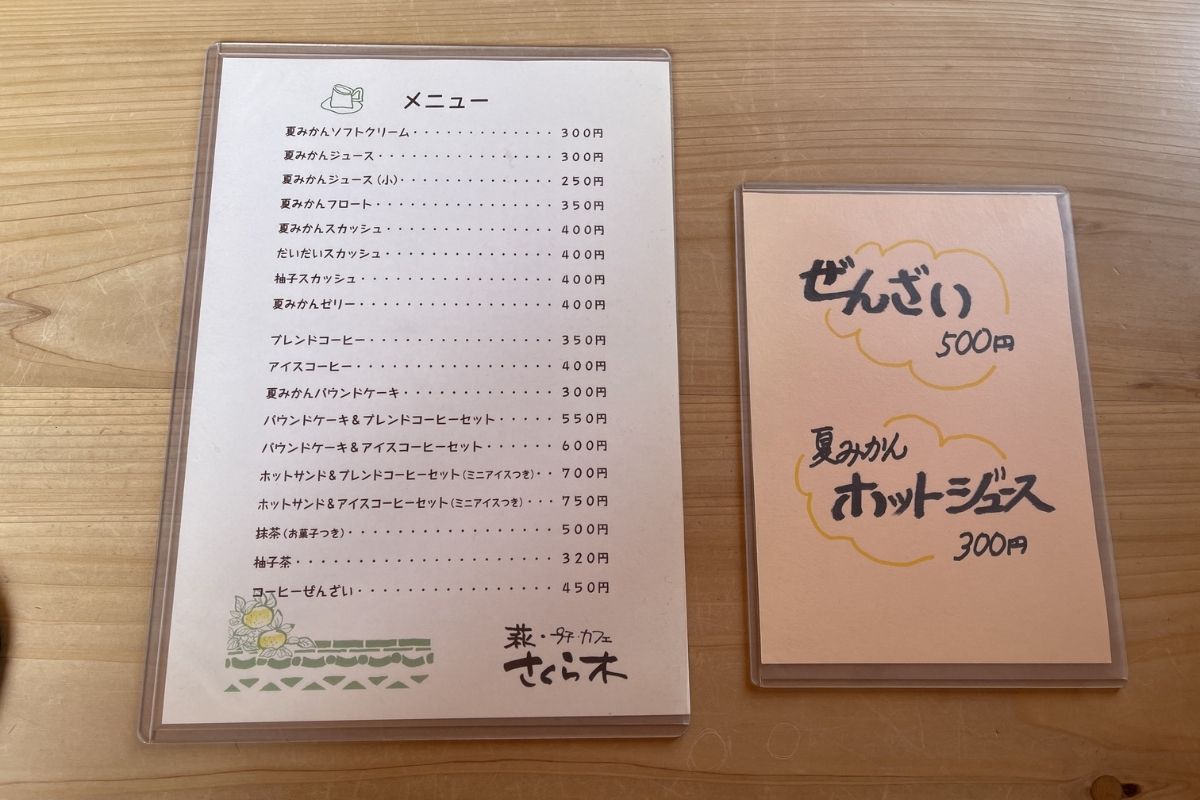 メニュー
夏みかんソフトクリーム・・・・・・・・・・・・・300円
夏みかんジュース・・・・・・・・・・・・・・・・300円
夏みかんジュース（小）・・・・・・・・・・・・・・250円
夏みかんフロート・・・・・・・・・・・・・・・・350円
夏みかんスカッシュ・・・・・・・・・・・・・・・400円
だいだいスカッシュ・・・・・・・・・・・・・・・400円
柚子スカッシュ・・・・・・・・・・・・・・・・・400円
夏みかんゼリー・・・・・・・・・・・・・・・・・400円
ブレンドコーヒー・・・・・・・・・・・・・・・・350円
アイスコーヒー・・・・・・・・・・・・・・・・・400円
夏みかんパウンドケーキ・・・・・・・・・・・・・300円
パウンドケーキ＆ブレンドコーヒーセット・・・・・550円
パウンドケーキ＆アイスコーヒーセット・・・・・・600円
ホットサンド＆ブレンドコーヒーセット（ミニアイスつき）・・700円
ホットサンド＆アイスコーヒーセット（ミニアイスつき）・・・750円
抹茶（お菓子つき）・・・・・・・・・・・・・・・・500円
柚子茶・・・・・・・・・・・・・・・・・・・・・320円
コーヒーぜんざい・・・・・・・・・・・・・・・・450円
萩・カフェ
さくら木
ぜんざい
500円
夏みかん
ホットジュース
300円